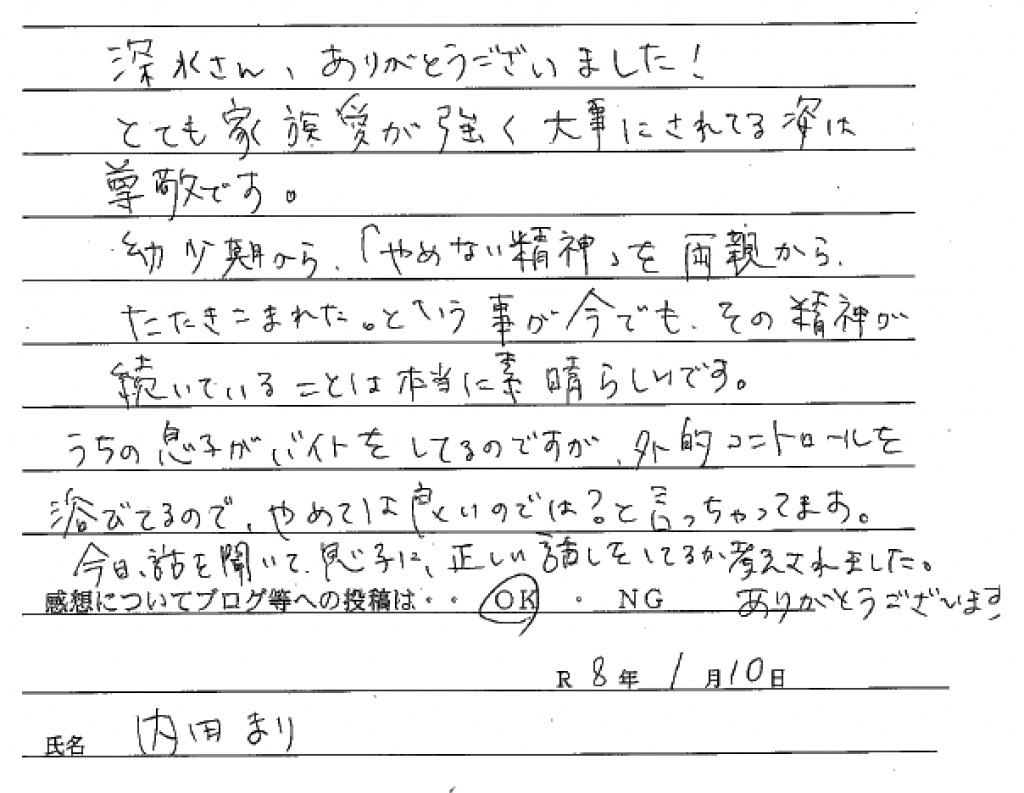 深水さん、ありがとうございました!
とても家族愛が強く大事にされてる姿は
尊敬です。
幼少期から、「やめない精神」を両親から、
たたきこまれた。という事が今でも、その精神が
続いていることは本当に素晴らしいです。
うちの息子がバイトをしてるのですが、外的コントロールを
浴びてるので、やめては良いのでは?と言っちゃってます。
今日、話を聞いて、息子に、正しい話しをしてるか考えされました。
感想についてブログ等への投稿は・・ OK ・ NG ありがとうございます
R 8年 1月10日
氏名 内田まり